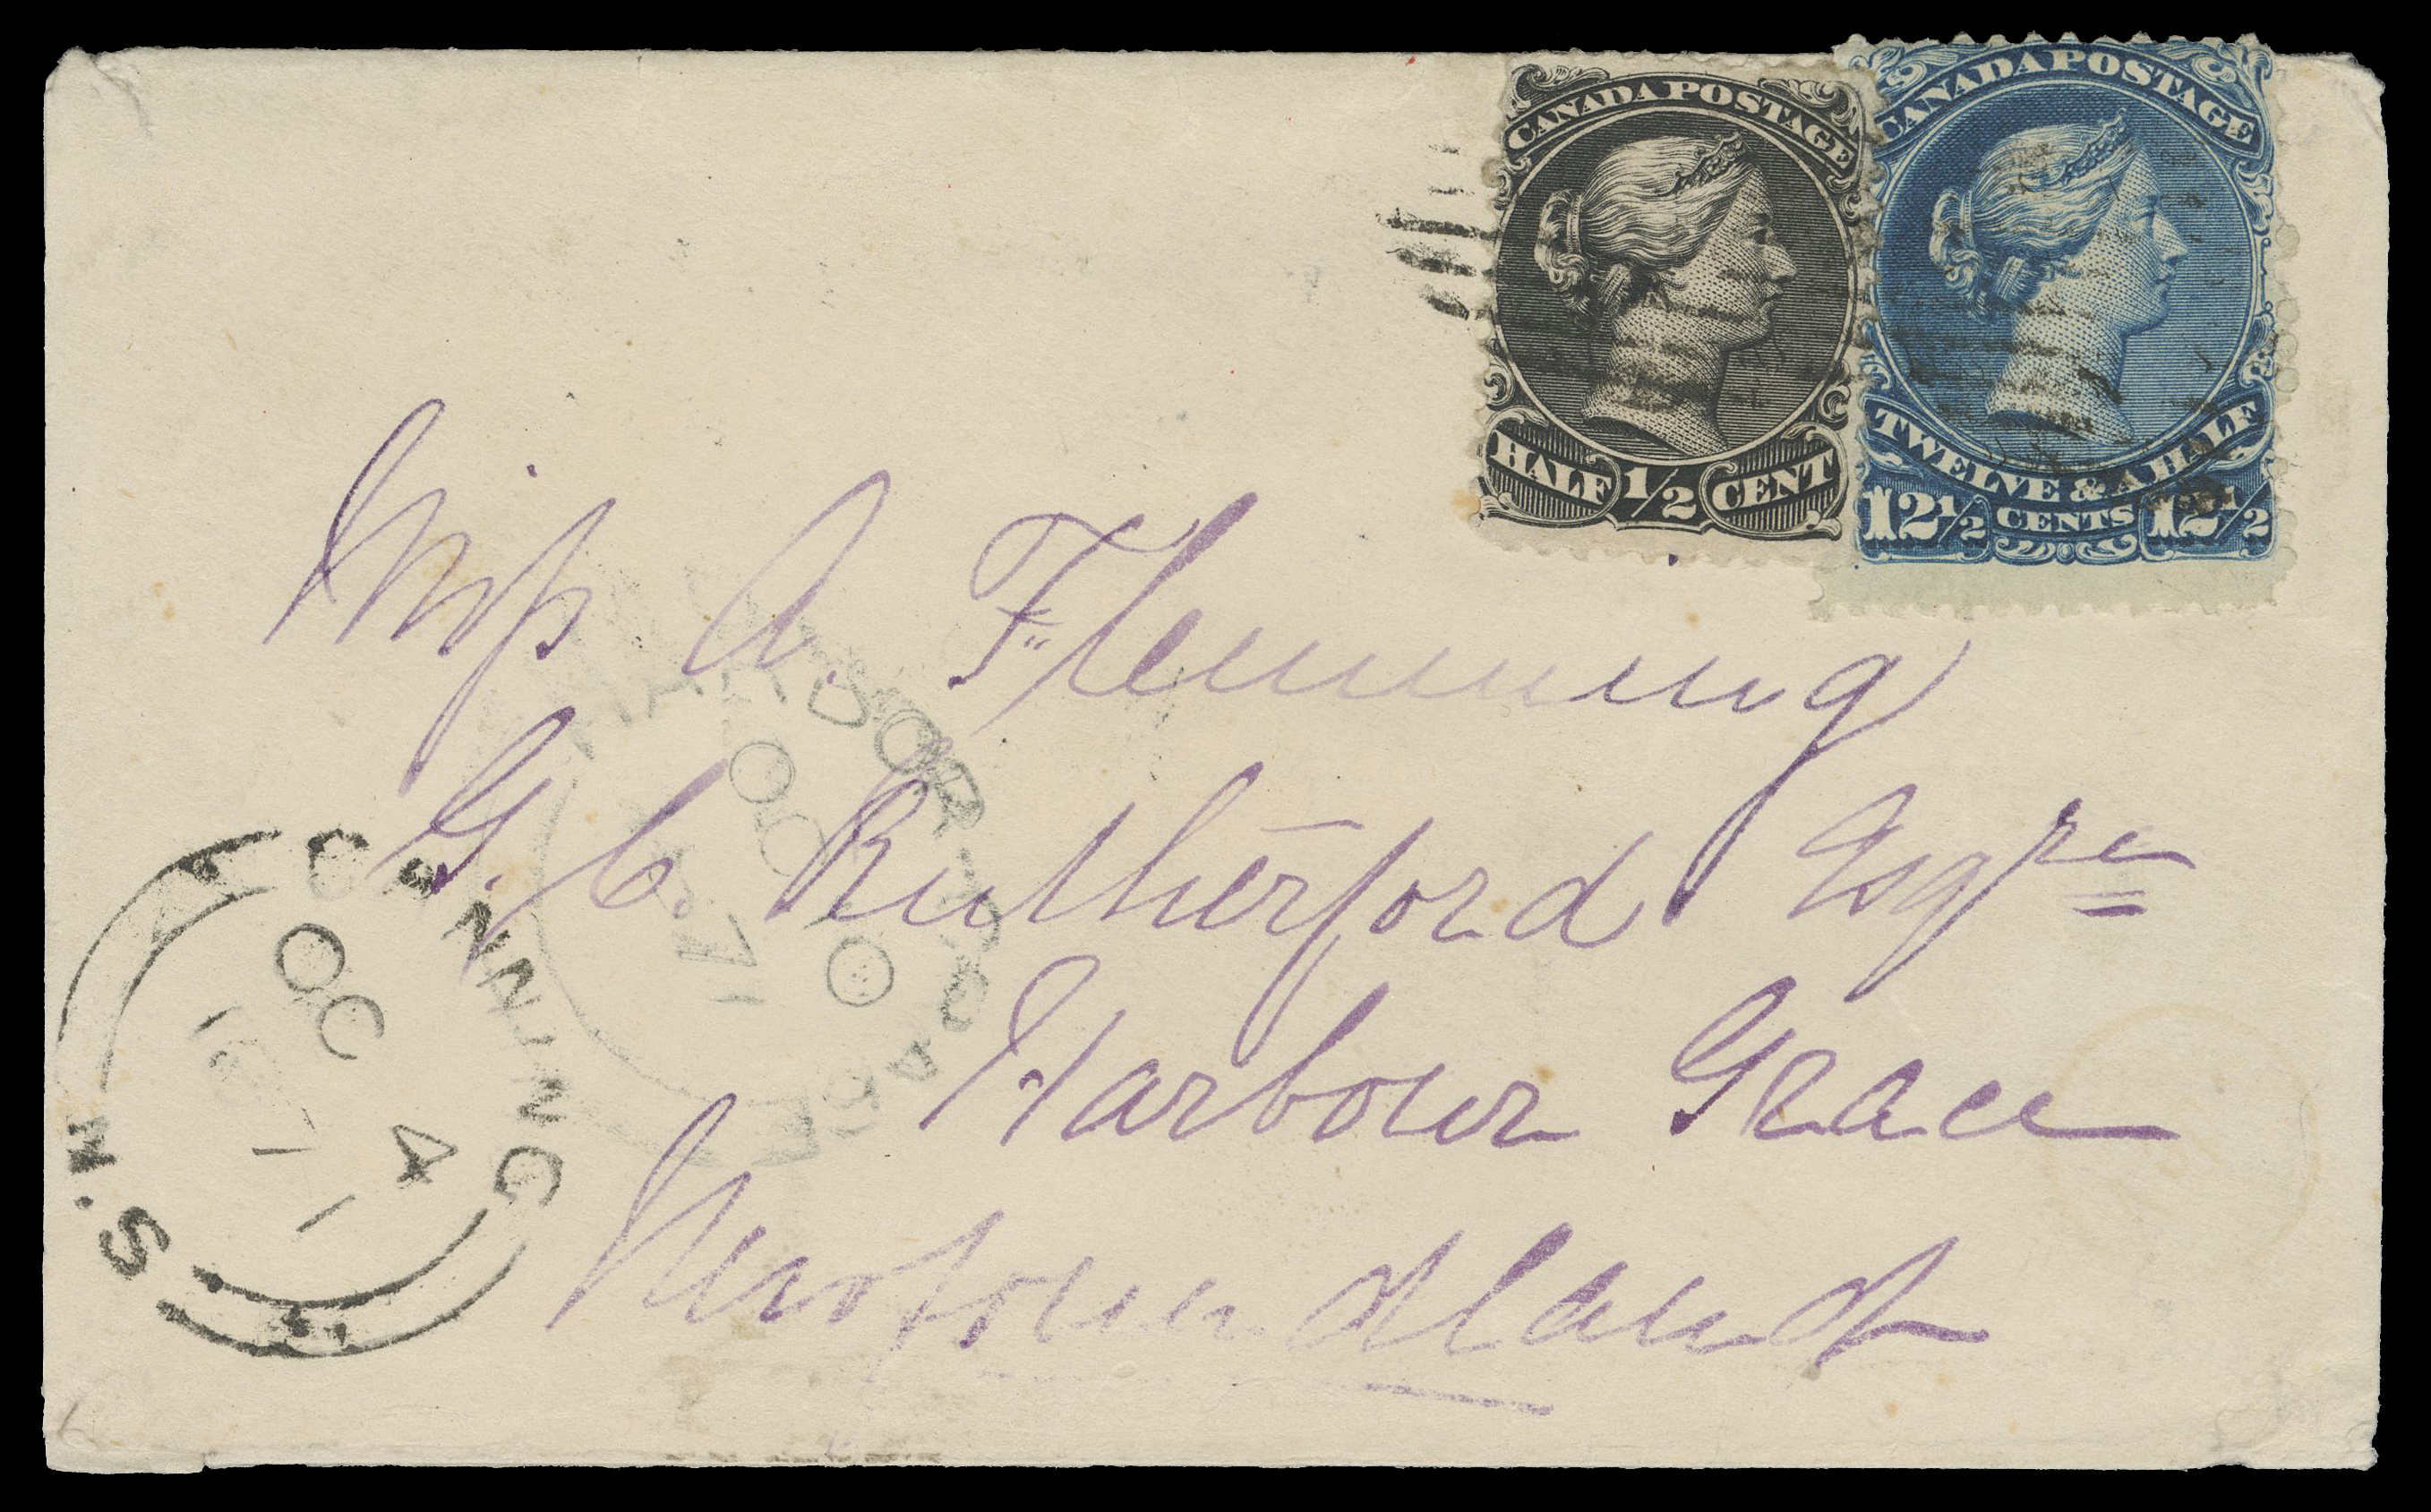 CANADA POSTAGE
HALF 1/2 CENT
CANADA POSTAGE
TWELVE & A HALF
12 1/2 CENTS 12 1/2
Miss A. Flemming
G. C. Rutherford Esqre
Harbour Grace
Newfoundland
CANNING
OC 4
1871
N.S
HARBOR GRACE
OC
71